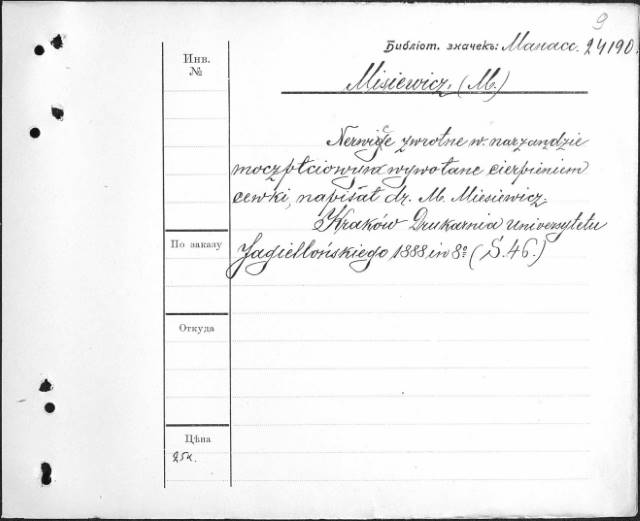 9
Библіот. значекъ: Манасс. 24190.
Инв.
№
Misiewicz, (M.)
Nerwice zwrotne w narzandzie
moczpłciowym wywołane cierpienium
cewki, napisał dr. M. Miesiewicz.
Kraków Drukarnia Universytetu
По заказу
Jagiellońskiego 1888 in 8º (S. 46.)
Откуда
Цѣна
25к.